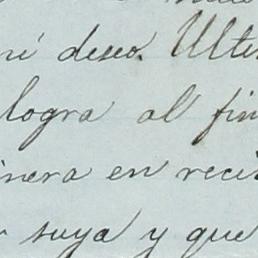 mi deseo. Ulti
logra al fin
nera en reci
suya y que